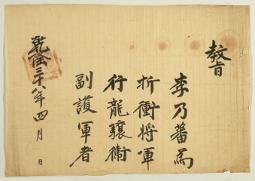 教旨
李乃蕃爲
折衝將軍
行龍驤衛
副護軍者
乾隆三十八年四月 日